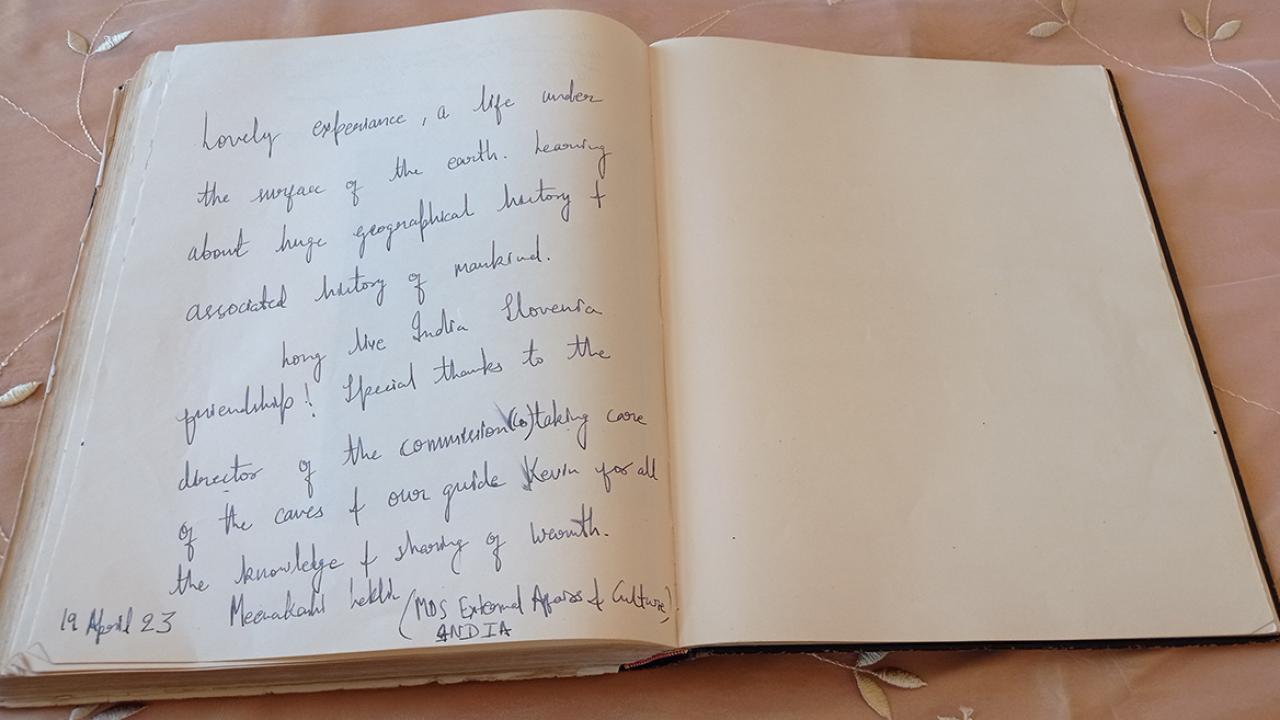 Lovely experiance, a life under
the surface of the earth. Learning
about huge geographical history &
associated history of mankind.
Long live India Slovenia
friendship! Special thanks to the
director of the commission(s) taking care
of the caves & our guide Kevin for all
the knowledge & sharing of warmth.
Meenakashi Lekhi (MOS External Affairs & Culture)
19 April 23
INDIA